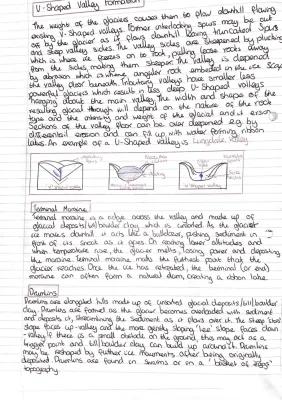 U-Shaped Valley Formation
The weight of the glaciers causes them to flow downhill flowing
existing V-Shaped valleys. Former interlocking spurs may be cut
off by the glacier as it flows downhill leaving truncated spurs
and steep valley sides. The valley sides are steepened by plucking
which is where ice freezes on to rock pulling loose rocks away
from the sides, making them steeper. The valley is deepened
by abrasion which is where angular rock embedded in the ice scrape
the valley floor beneath. Tributary valleys have smaller less
powerful glaciers which result in less deep U-Shaped valleys
hanging above the main valley. The width and shape of the
resulting glacial trough will depend on the nature of the rock
type and the intensity and weight of the glacial and it erosn
Sections of the valley floor can be over deepened eg by
differential erosion and can fill up with water forming ribbon
lakes. An example of a U-Shaped valley is
V shaped valley
U shaped valley
Terminal Moraine
Terminal moraine is a ridge across the valley and made up of
glacial deposits/till/boulder clay, which is unsorted. As the glacier
ice moves downhill it acts like a bulldozer, pushing sediment in
front of its snout as it goes. On reaching lower altitudes and
when temperatures rise, the glacier melts, losing power and depositing
the moraine. Terminal moraine marks the furthest point that the
glacier reaches. Once the ice has retreated, the terminal (or end)
moraine can often form a natural dam, creating a ribbon lake.
Drumlins
Drumlins are elongated hills made up of unsorted glacial deposits/till/boulder
clay. Drumlins are formed as the glacier becomes overloaded with sediment
and deposits it, streamlining the sediment as it flows over it. The steep 'stoss'
slope faces up-valley and the more gently sloping 'lee' slope faces down
valley. If there is a small obstacle on the ground, this may act as a
trigger point and till/boulder clay can build up around it. Drumlins
may be reshaped by further ice movements after being originally
deposited. Drumlins are found in swarms or in a 'basket of eggs'
topography.